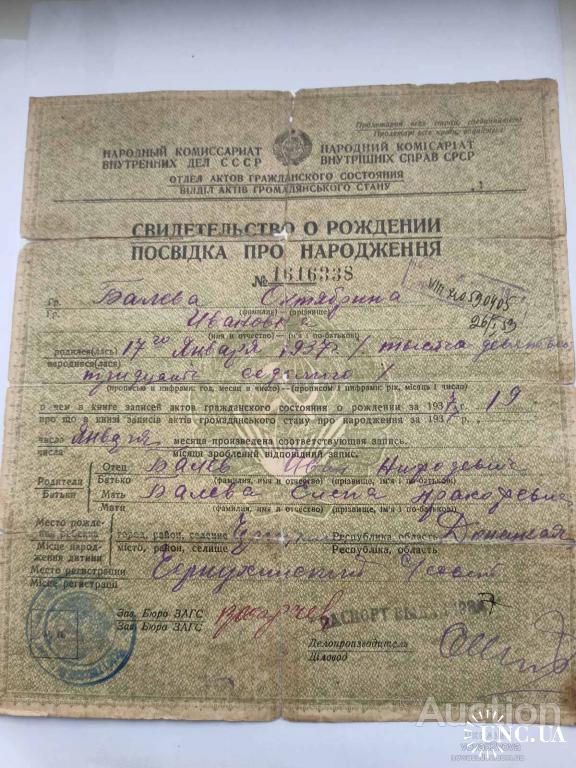 Пролетарии всех стран, соединяйтесь!
Пролетарі всіх країн, єднайтеся!
НАРОДНЫЙ КОМИССАРИАТ
ВНУТРЕННИХ ДЕЛ СССР
НАРОДНИЙ КОМІСАРІАТ
ВНУТРІШНІХ СПРАВ СРСР
ОТДЕЛ АКТОВ ГРАЖДАНСКОГО СОСТОЯНИЯ
ВІДДІЛ АКТІВ ГРОМАДЯНСЬКОГО СТАНУ
СВИДЕТЕЛЬСТВО О РОЖДЕНИИ
ПОСВІДКА ПРО НАРОДЖЕННЯ
№ 1616338
26/I 53
Гр. Балева Октябрина
Гр. (фамилия) — (прізвище)
Ивановна
(имя и отчество) — (ім'я і по-батькові)
родился(лась) 17го Января 1937г. / тысяча девятьсот
народився(лася)
тридцать седьмого /
(прописью и цифрами: год, месяц и число) — (прописом і цифрами: рік, місяць і число)
о чем в книге записей актов гражданского состояния о рождении за 1937 г. 19
про що в книзі записів актів громадянського стану про народження за 1937 р.,
число Января месяца произведена соответствующая запись.
числа місяця зроблений відповідний запис.
Родители Отец Балев Иван
Батьки Батько (фамилия, имя и отчество) (прізвище, ім'я і по-батькові)
Мать Балева Елена
Мати (фамилия, имя и отчество) (прізвище, ім'я і по-батькові)
Место рождения ребенка город, район, селение Республика, область Донецкая
Місце народження дитини місто, район, селище Республіка, область
Место регистрации Чернухинский
Місце реєстрації
Зав. Бюро ЗАГС
Зав. Бюро ЗАГС
ПАСПОРТ
Делопроизводитель
Діловод
Auction
UNC.UA